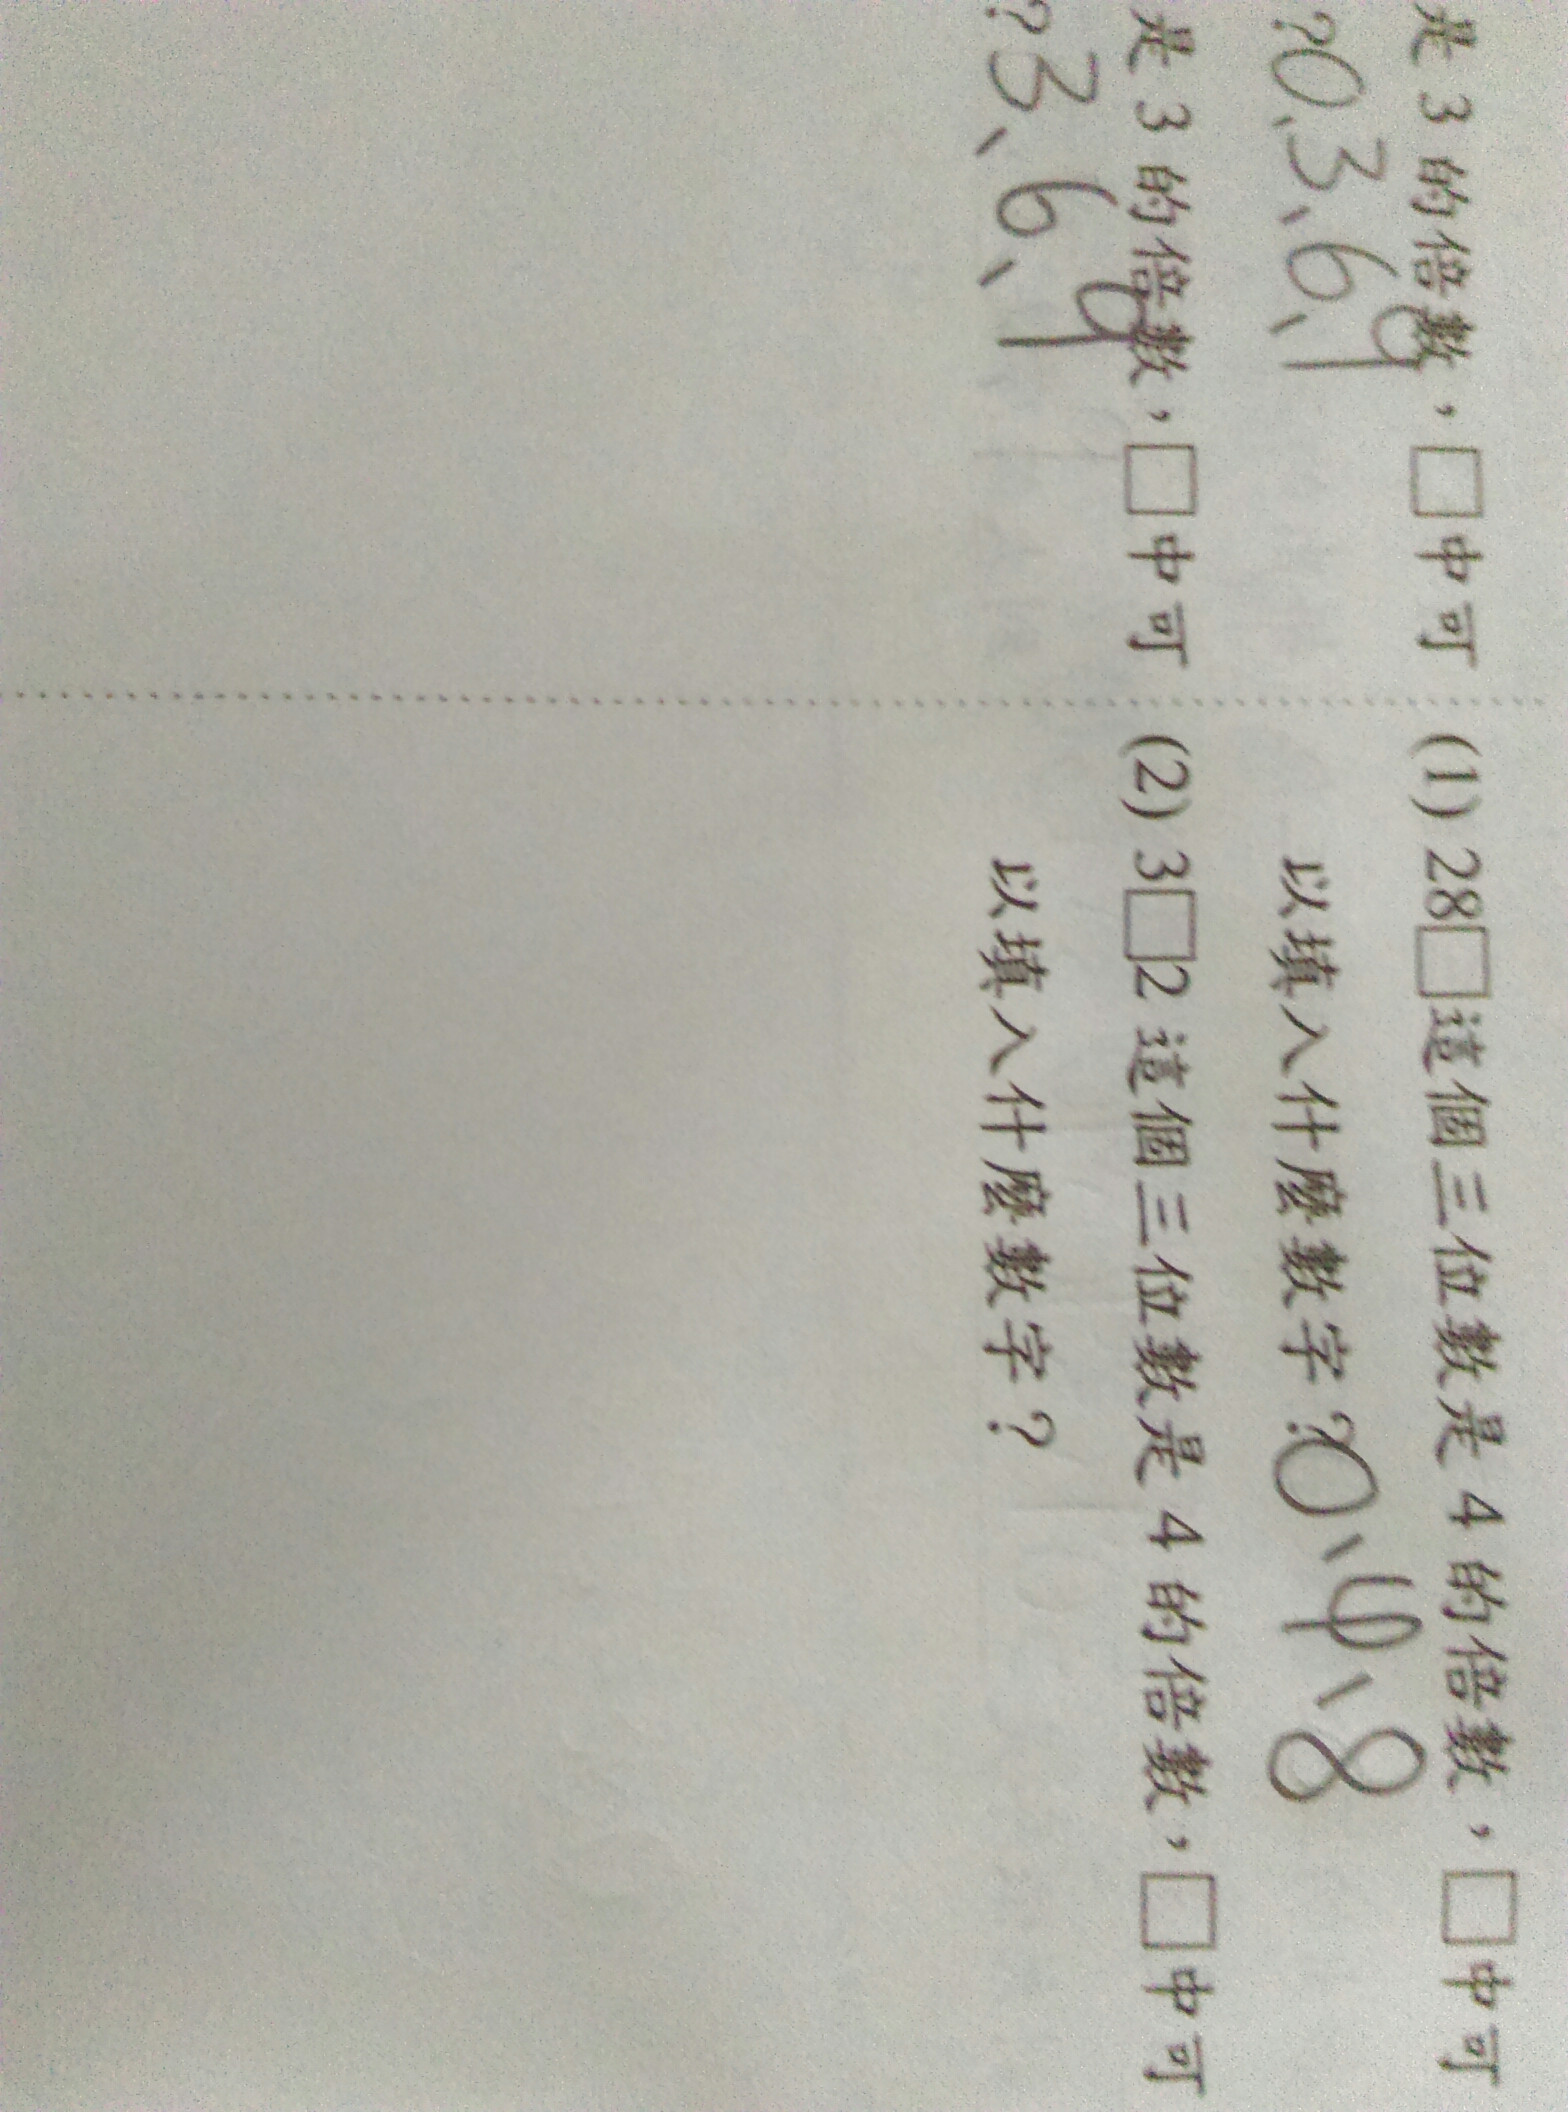 是 3 的倍數，□中可
？0、3、6、9
是 3 的倍數，□中可
？3、6、9
(1) 28□這個三位數是 4 的倍數，□中可
以填入什麼數字？0、4、8
(2) 3□2 這個三位數是 4 的倍數，□中可
以填入什麼數字？